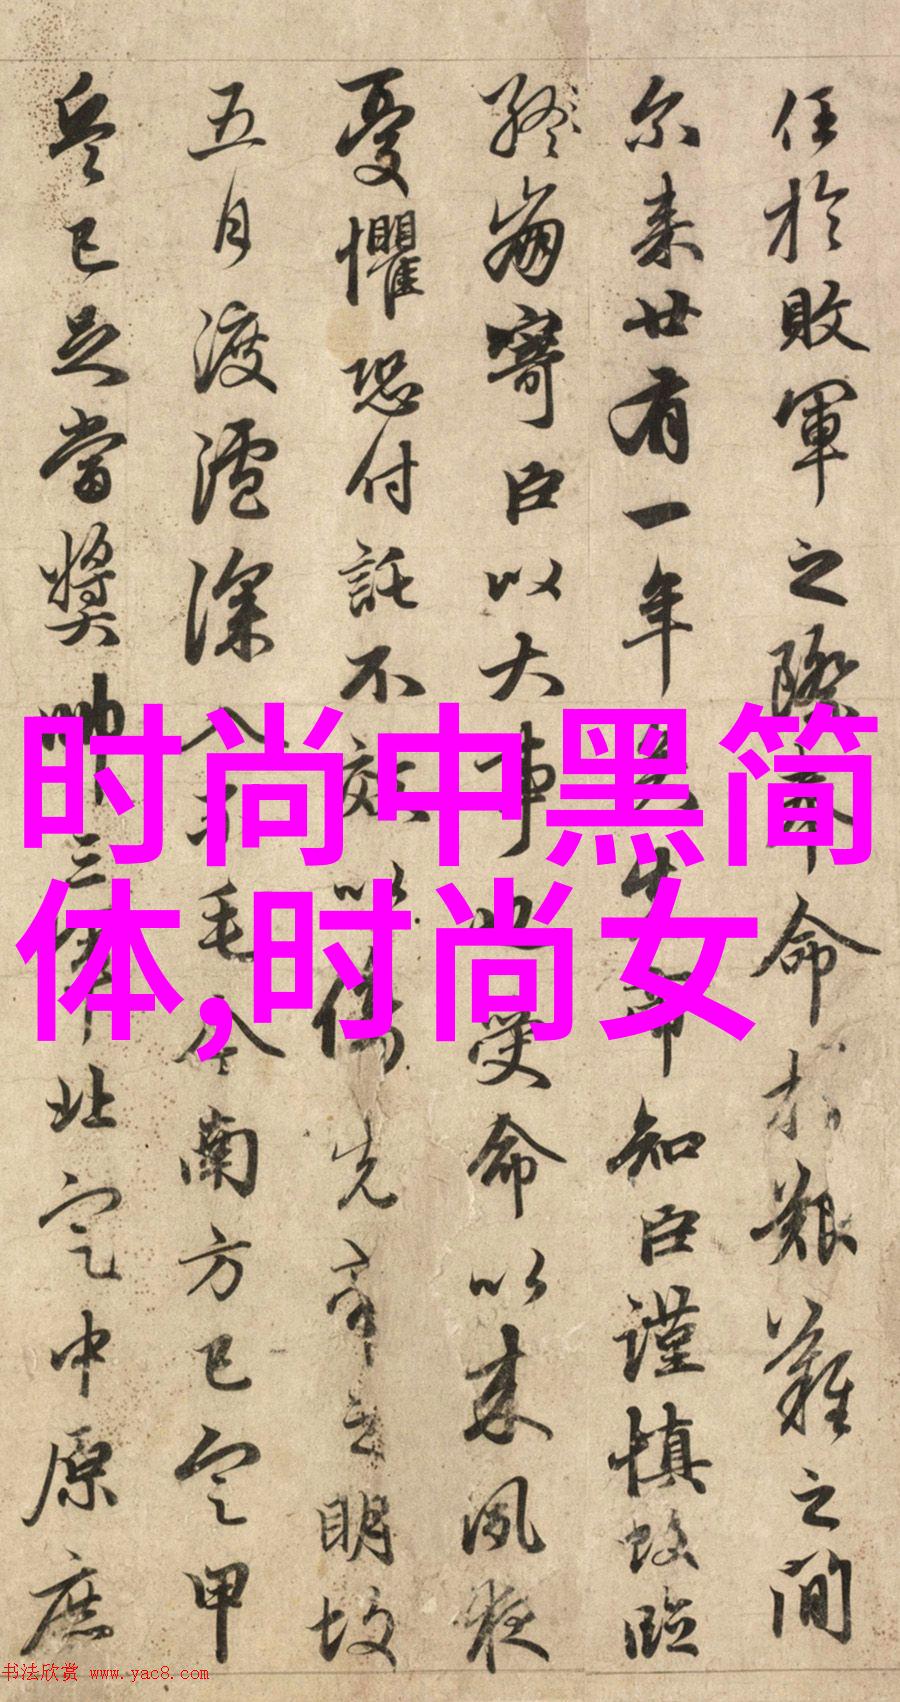 任於敗軍之際奉命於艱難之間
尒来廿有一年矣先帝知臣謹慎故臨
終崩寄臣以大事也受命以来夙夜
憂懼恐付託不效以傷先帝之明故
五月渡瀘深入不毛今南方已定甲
兵已足當獎帥三軍北定中原庶
时尚中黑简
体,时尚女
书法欣赏 www.yac8.com